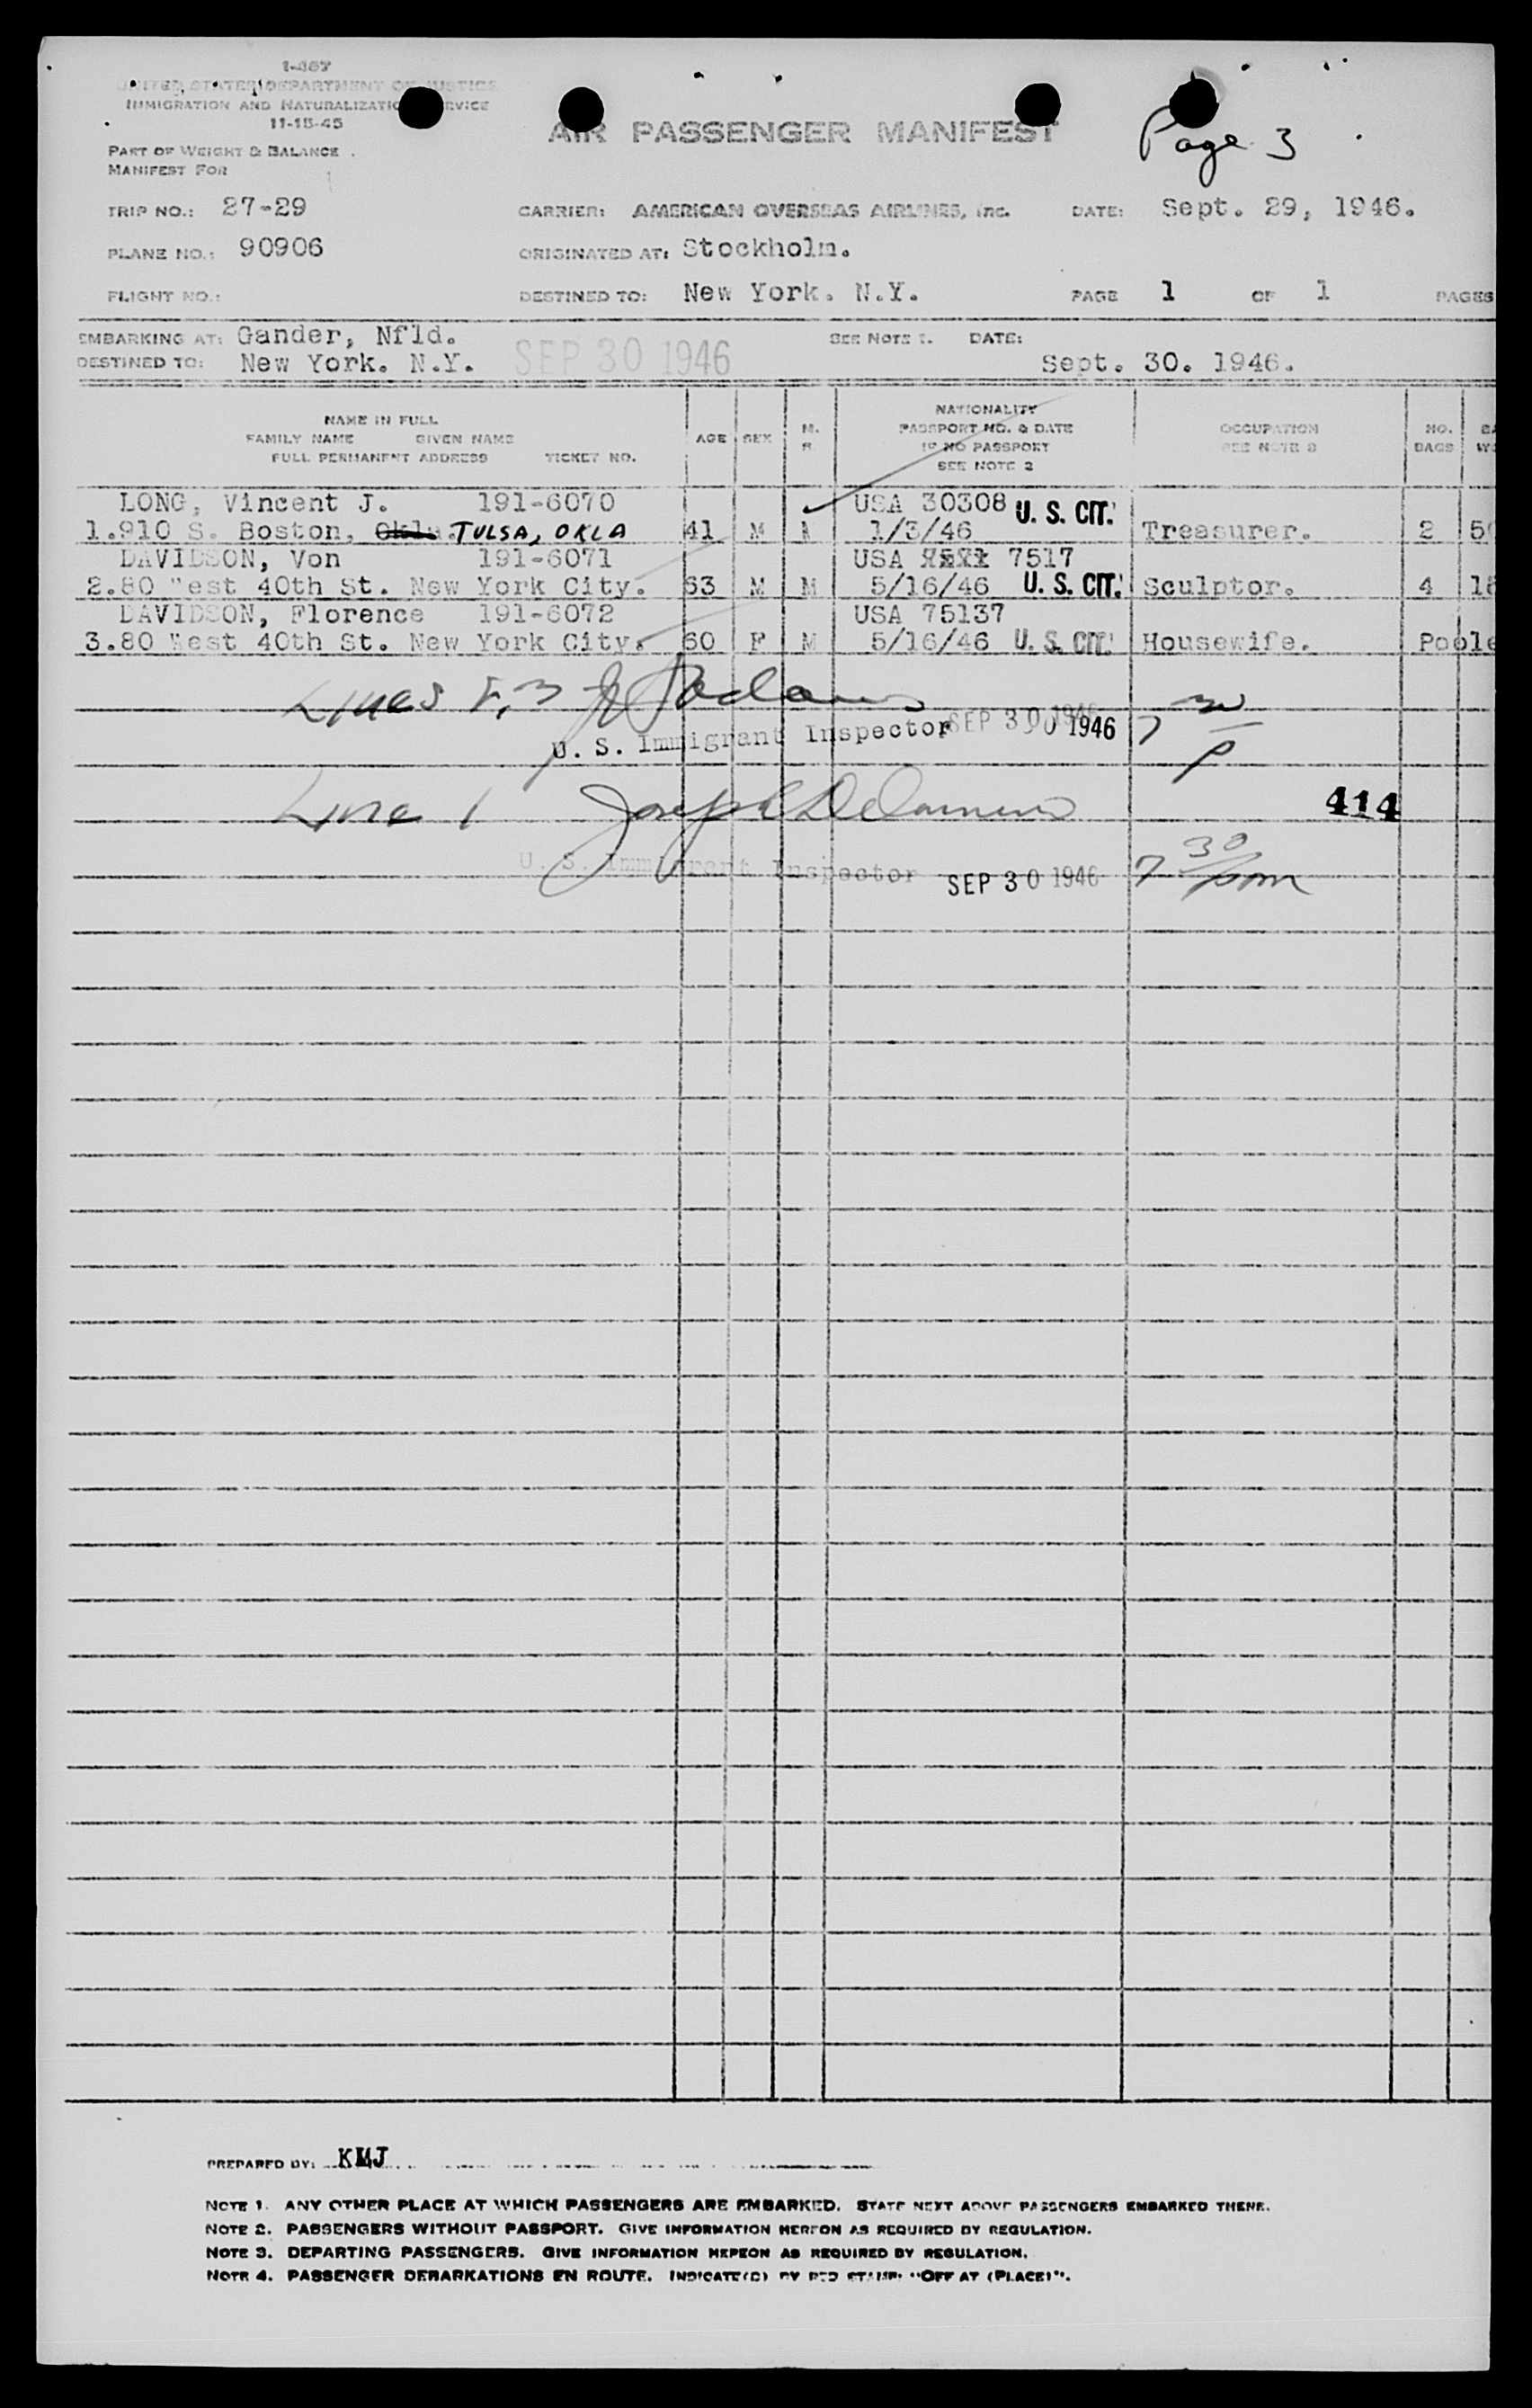 1-467
UNITED STATES DEPARTMENT OF JUSTICE
IMMIGRATION AND NATURALIZATION SERVICE
11-15-45
AIR PASSENGER MANIFEST
Page 3
PART OF WEIGHT & BALANCE
MANIFEST FOR
TRIP NO.: 27-29 CARRIER: AMERICAN OVERSEAS AIRLINES, Inc. DATE: Sept. 29, 1946.
PLANE NO.: 90906 ORIGINATED AT: Stockholm.
FLIGHT NO.: DESTINED TO: New York. N.Y. PAGE 1 OF 1 PAGES
EMBARKING AT: Gander, Nfld. SEE NOTE 1. DATE:
DESTINED TO: New York. N.Y. SEP 30 1946 Sept. 30. 1946.
NAME IN FULL
FAMILY NAME GIVEN NAME
FULL PERMANENT ADDRESS TICKET NO.
AGE SEX M. S
NATIONALITY
PASSPORT NO. & DATE
IF NO PASSPORT
SEE NOTE 2
OCCUPATION
SEE NOTE 3
NO.
BAGS
LONG, Vincent J. 191-6070 USA 30308 U. S. CIT.
1.910 S. Boston, Okla. TULSA, OKLA 41 M M 1/3/46 Treasurer. 2
DAVIDSON, Von 191-6071 USA 7517
2.80 West 40th St. New York City. 63 M M 5/16/46 U. S. CIT. Sculptor. 4
DAVIDSON, Florence 191-6072 USA 75137
3.80 West 40th St. New York City. 60 F M 5/16/46 U. S. CIT. Housewife. Poole
Lines 2,3
U. S. Immigrant Inspector SEP 30 1946 7 30 P
Line 1 Joseph
414
U. S. Immigrant Inspector SEP 30 1946 7 30 pm
PREPARED BY: KMJ
NOTE 1. ANY OTHER PLACE AT WHICH PASSENGERS ARE EMBARKED. STATE NEXT ABOVE PASSENGERS EMBARKED THERE.
NOTE 2. PASSENGERS WITHOUT PASSPORT. GIVE INFORMATION HEREON AS REQUIRED BY REGULATION.
NOTE 3. DEPARTING PASSENGERS. GIVE INFORMATION HEREON AS REQUIRED BY REGULATION.
NOTE 4. PASSENGER DEBARKATIONS EN ROUTE. INDICATE(D) BY RED STAMP: "OFF AT (PLACE)".